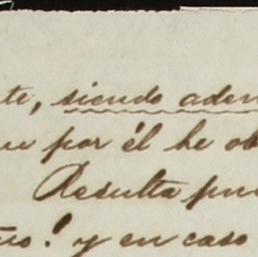 te, siendo adem
por él he ob
Resulta pue
! y en caso